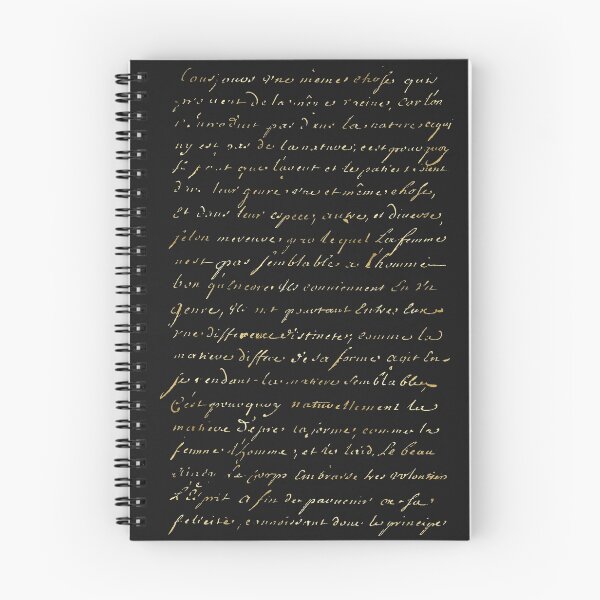 Tousjours une mêmes choses quis
prouvent de la mêmes racines, Car l'on
n'introduit pas dans la natures ce qui
ny est pas de la natures; c'est pourquoy
que l'agent et les patient soient
dans leur genre une et même chose,
et dans leur especes autre, et diverse,
selon mercure; par lequel la femme
nest pas semblables a l'homme
bon qu'encores ils conviennent En un
Genre, ils nt pourtant Entres Eux
une difference distincter, comme la
matiere differe de sa forme agit En-
se rendant la matiere semblable
C'est pourquoy naturellement la
matiere desire la forme, comme la
femme l'homme, et les laid, le beau
ainsi le corps Embrasse tres volontiers
l'Esprit a fin de parvenir a sa
felicité, connoissant donc le principe